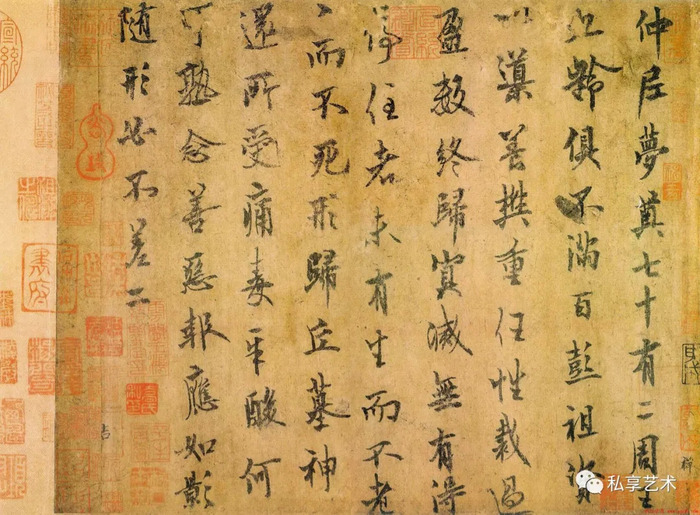 仲尼夢奠七十有二周王
九齡俱不滿百彭祖資
以導養樊重任性裁過
盈數終歸冥滅無有得
停住者未有生而不老
老而不死形歸丘墓神
還所受痛毒辛酸何
可熟念善惡報應如影
隨形必不差二
私享艺术